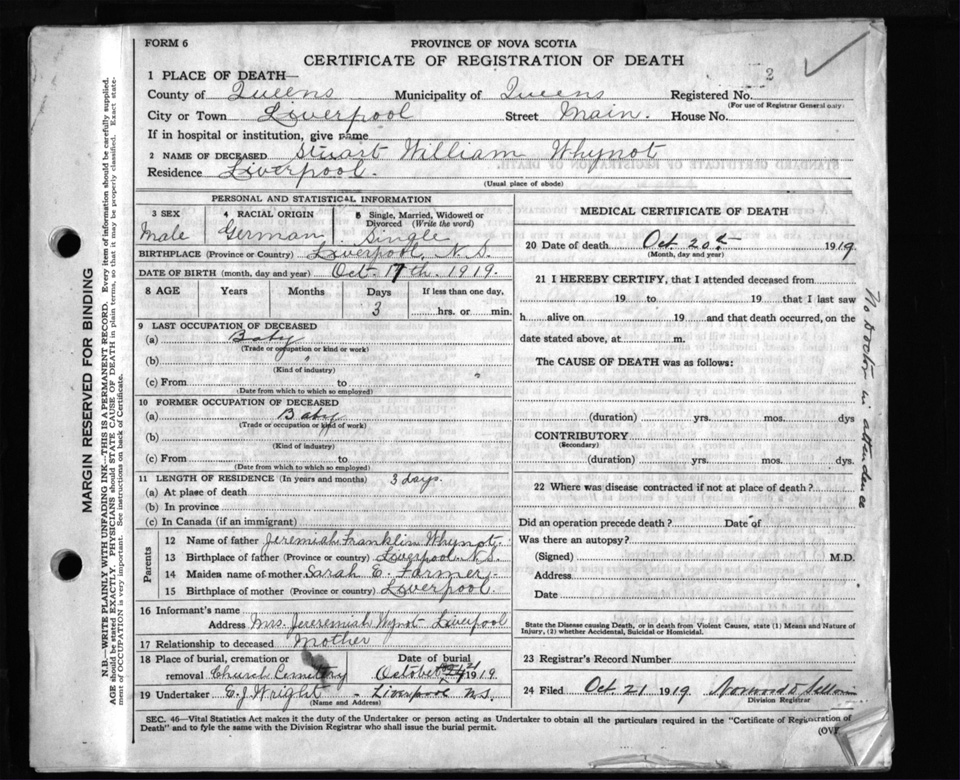 FORM 6
PROVINCE OF NOVA SCOTIA
CERTIFICATE OF REGISTRATION OF DEATH
2
1 PLACE OF DEATH—
County of Queens Municipality of Queens Registered No.
(For use of Registrar General only)
City or Town Liverpool Street Main. House No.
If in hospital or institution, give name
2 NAME OF DECEASED Stuart William Whynot
Residence Liverpool.
(Usual place of abode)
PERSONAL AND STATISTICAL INFORMATION
3 SEX 4 RACIAL ORIGIN 5 Single, Married, Widowed or Divorced (Write the word)
Male German Single
BIRTHPLACE (Province or Country) Liverpool, N.S.
DATE OF BIRTH (month, day and year) Oct 17th. 1919.
8 AGE Years Months Days If less than one day,
3 hrs. or min.
9 LAST OCCUPATION OF DECEASED
(a) Baby
(Trade or occupation or kind or work)
(b) "
(Kind of industry)
(c) From to
(Date from which to which so employed)
10 FORMER OCCUPATION OF DECEASED
(a) Baby
(Trade or occupation or kind of work)
(b)
(Kind of industry)
(c) From to
(Date from which to which so employed)
11 LENGTH OF RESIDENCE (In years and months) 3 days.
(a) At place of death
(b) In province
(c) In Canada (if an immigrant)
Parents
12 Name of father Jeremiah Franklin Whynot.
13 Birthplace of father (Province or country) Liverpool N.S.
14 Maiden name of mother Sarah E. Farmer.
15 Birthplace of mother (Province or country) Liverpool.
16 Informant's name
Address Mrs. Jereremiah Wynot Liverpool
17 Relationship to deceased Mother
18 Place of burial, cremation or removal Church Cemetery
Date of burial October 21 1919.
19 Undertaker E.J. Wright - Liverpool N.S.
(Name and Address)
MEDICAL CERTIFICATE OF DEATH
20 Date of death Oct 20th 1919
(Month, day and year)
21 I HEREBY CERTIFY, that I attended deceased from
19 to 19 that I last saw
h alive on 19 and that death occurred, on the
date stated above, at m.
The CAUSE OF DEATH was as follows:
(duration) yrs. mos. dys
CONTRIBUTORY
(Secondary)
(duration) yrs. mos. dys.
22 Where was disease contracted if not at place of death?
Did an operation precede death? Date of
Was there an autopsy?
(Signed) M.D.
Address
Date
State the Disease causing Death, or in death from Violent Causes, state (1) Means and Nature of
Injury, (2) whether Accidental, Suicidal or Homicidal.
23 Registrar's Record Number
24 Filed Oct 21 1919
Division Registrar
No Doctor in attendence
SEC. 46—Vital Statistics Act makes it the duty of the Undertaker or person acting as Undertaker to obtain all the particulars required in the "Certificate of Registration of
Death" and to fyle the same with the Division Registrar who shall issue the burial permit.
(OV
MARGIN RESERVED FOR BINDING
N.B.—WRITE PLAINLY WITH UNFADING INK—THIS IS A PERMANENT RECORD. Every item of information should be carefully supplied.
AGE should be stated EXACTLY. PHYSICIANS should STATE CAUSE OF DEATH in plain terms, so that it may be properly classified. Exact state-
ment of OCCUPATION is very important. See instructions on back of Certificate.